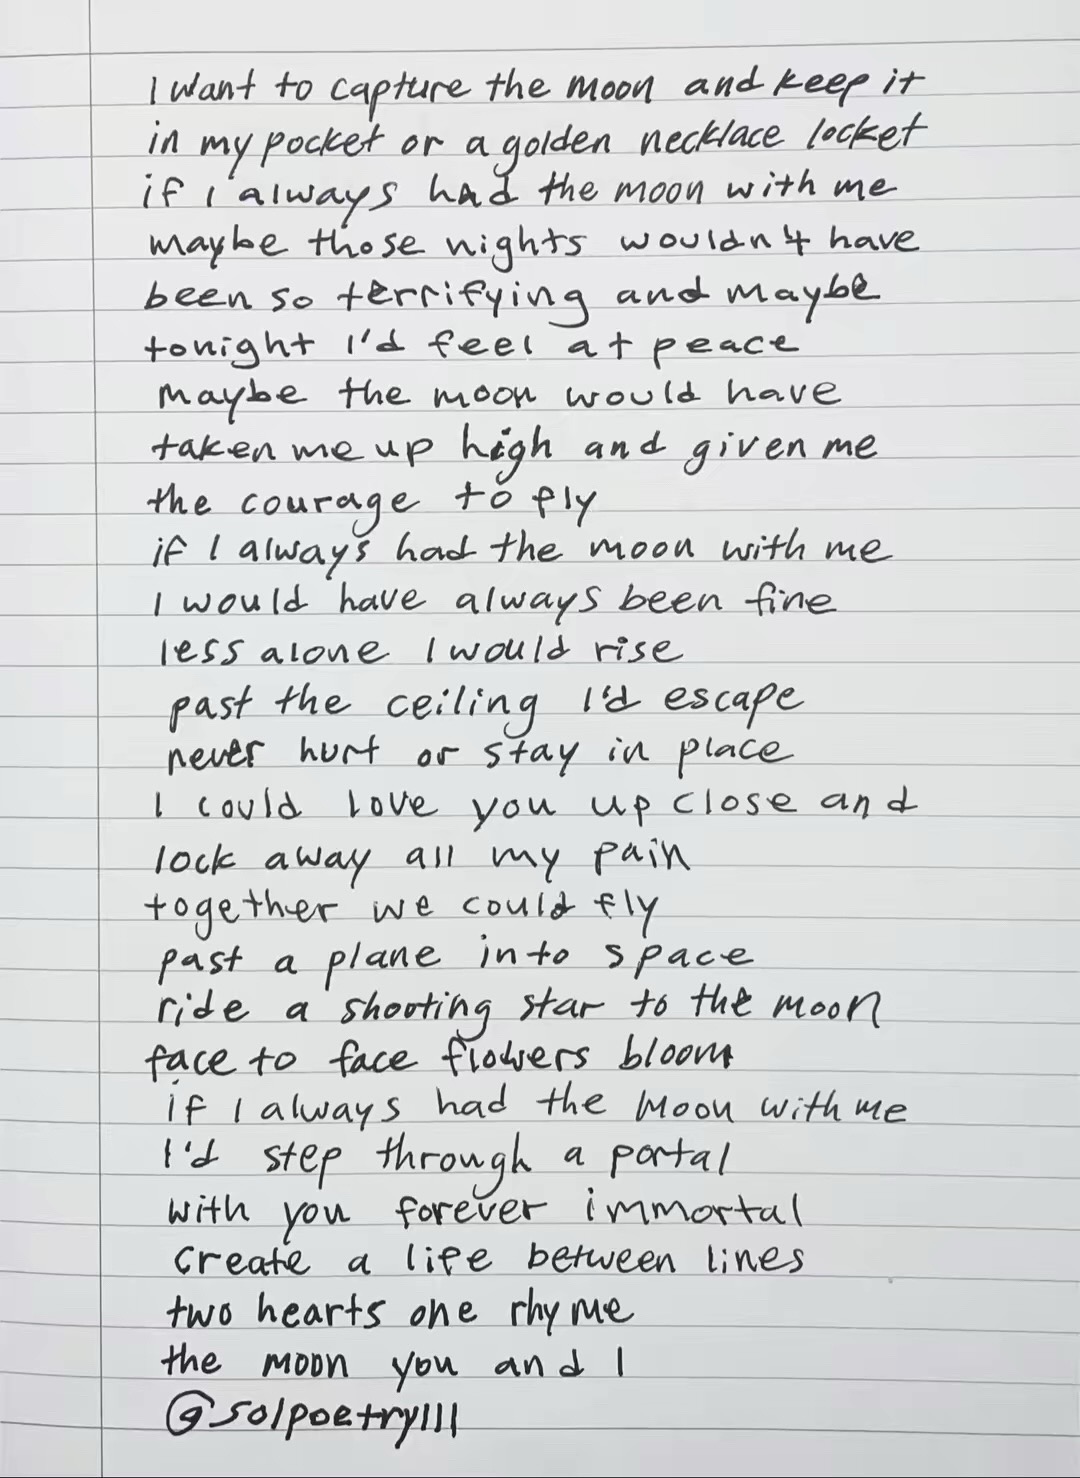 I want to capture the moon and keep it
in my pocket or a golden necklace locket
if I always had the moon with me
maybe those nights wouldn't have
been so terrifying and maybe
tonight I'd feel at peace
maybe the moon would have
taken me up high and given me
the courage to fly
if I always had the moon with me
I would have always been fine
less alone I would rise
past the ceiling I'd escape
never hurt or stay in place
I could love you up close and
lock away all my pain
together we could fly
past a plane into space
ride a shooting star to the moon
face to face flowers bloom
if I always had the moon with me
I'd step through a portal
with you forever immortal
create a life between lines
two hearts one rhyme
the moon you and I
@solpoetry111